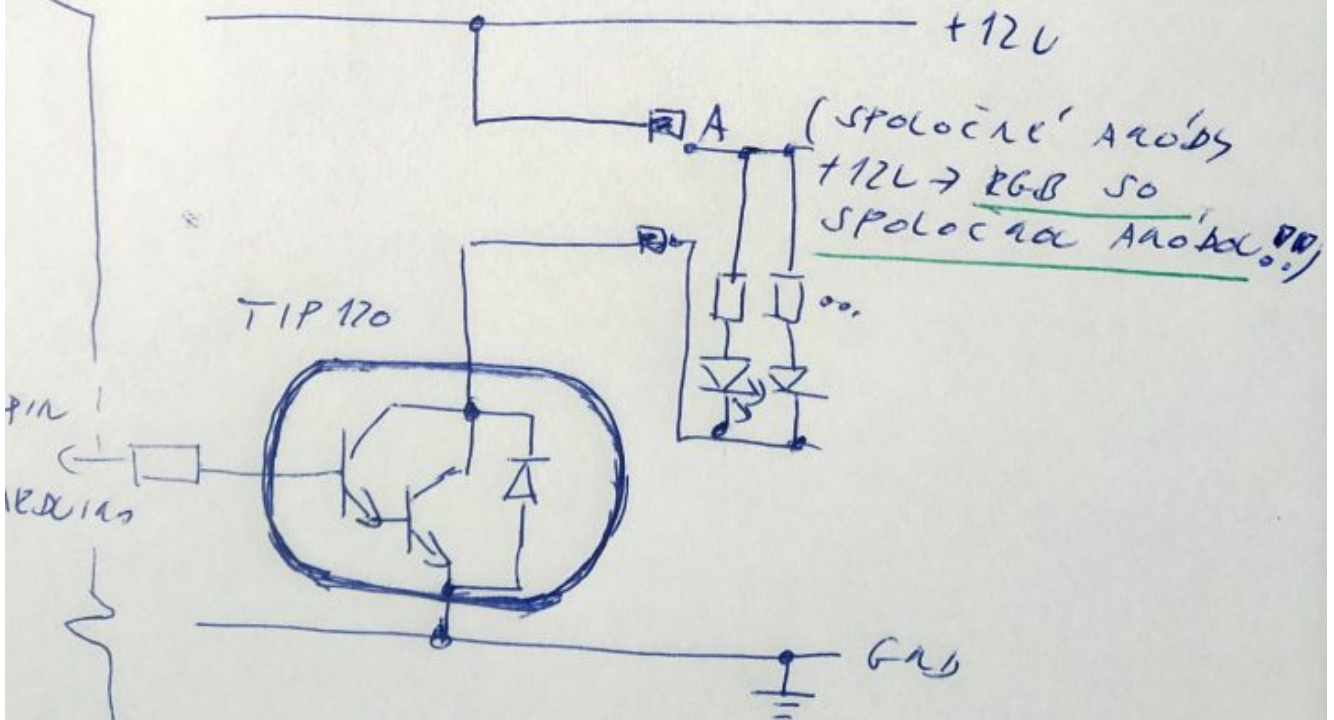 +12V
A
(SPOLOČNÉ ANÓDY
+12V → RGB SO
SPOLOČNOU ANÓDOU!!)
TIP 120
PIN
ARDUINO
GND